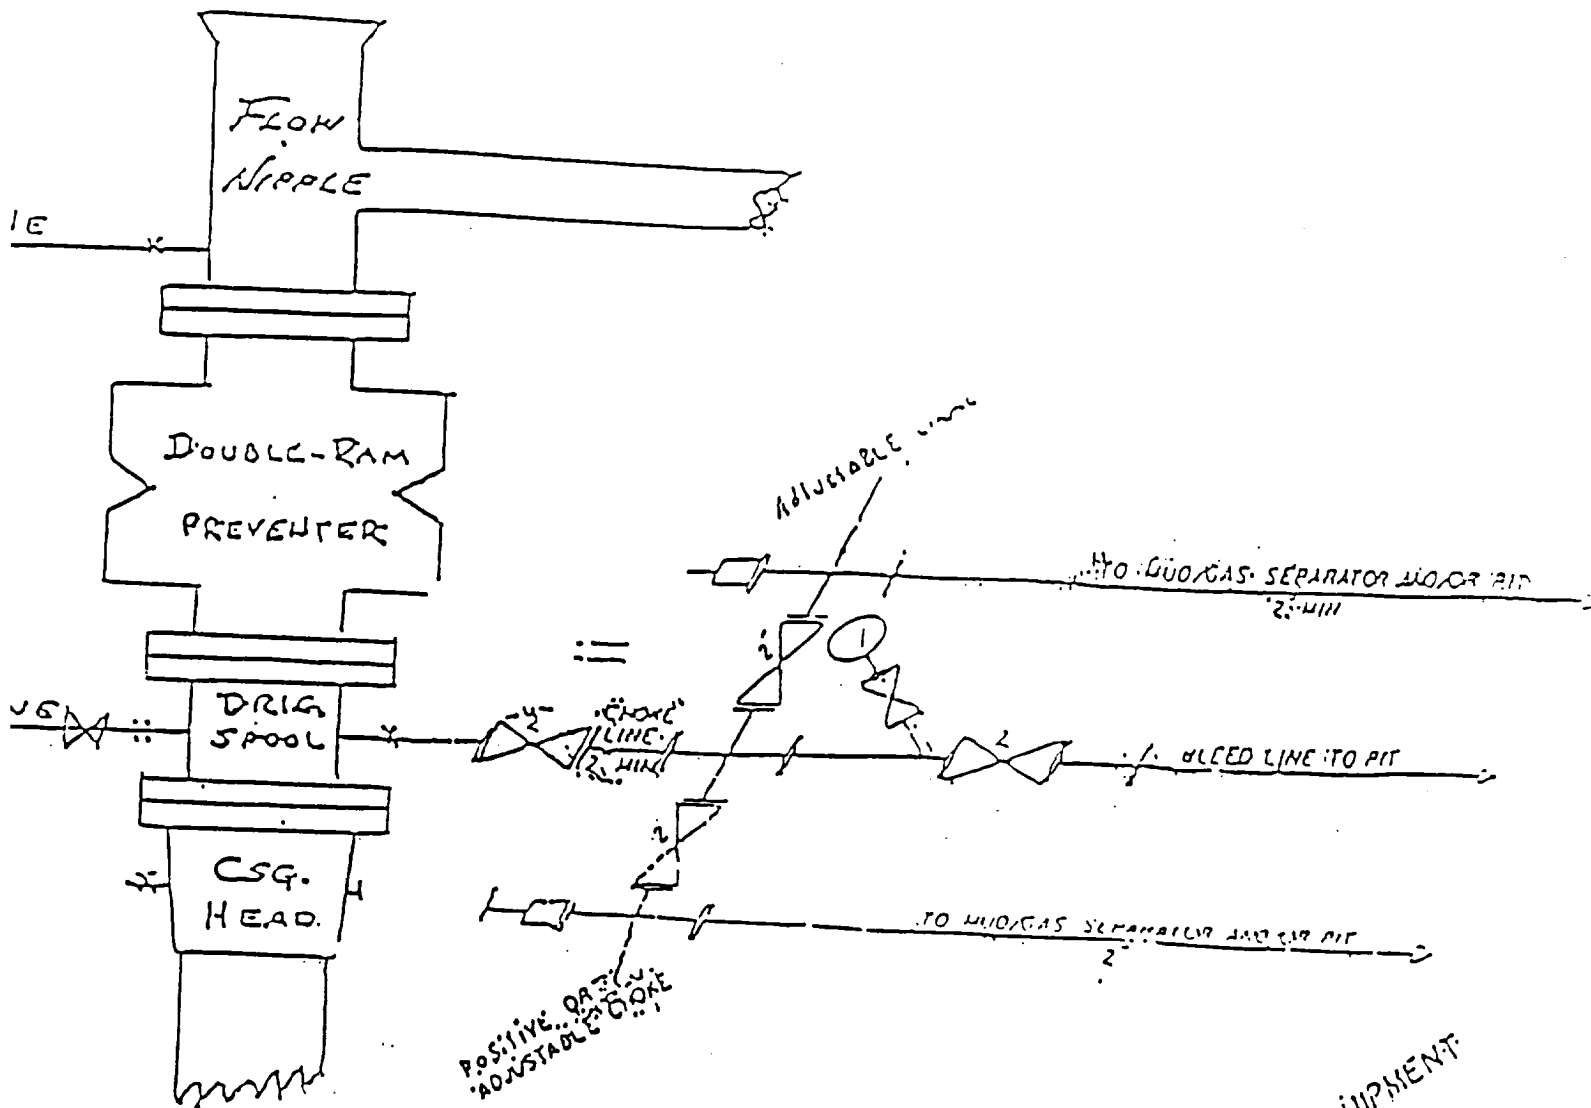 FLOW
NIPPLE
IE
DOUBLE-RAM
PREVENTER
ADJUSTABLE
TO MUD/GAS SEPARATOR AND/OR PIT
2" MIN
2"
1
VE
DRLG.
SPOOL
2"
"CHOKE"
LINE
2" MIN
2
BLEED LINE TO PIT
2
CSG.
HEAD.
TO MUD/GAS SEPARATOR AND/OR PIT
2"
POSITIVE OR
ADJUSTABLE CHOKE
UIPMENT